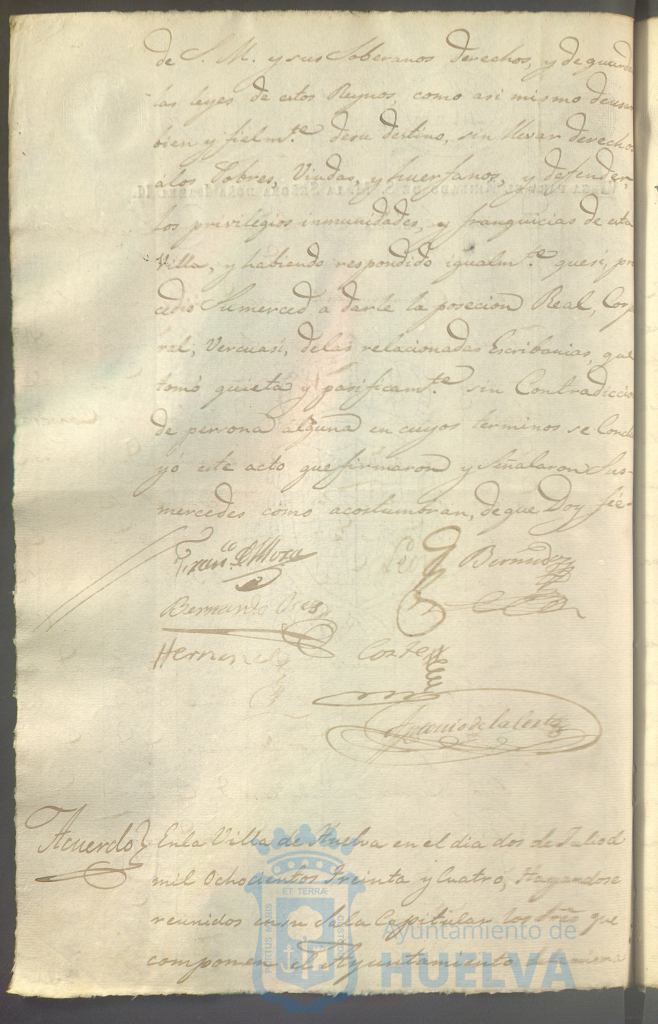 de S. M. y sus Soberanos derechos, y de guarda
las leyes de estos Reynos, como asi mismo de usar
bien y fielm.te desu destino, sin llevar derechos
álos Pobres, Viudas, y huerfanos, y defender,
los privilegios inmunidades, y franquicias de esta
Villa, y habiendo respondido igualm.te que si, pro
cedio Sumerced a darle la posecion Real, Corpo
ral, Vercuasi, delas relacionadas Escribanias, que
tomó quieta y pasificam.te sin Contradiccion
de persona alguna en cuyos terminos se Conclu
yó este acto que firmaron y Señalaron Sus
mercedes como acostumbran, de que Doy fée-
Bermudez
Bernardo
Hernandez Cortes
Antonio de la Corte
Acuerdo Enla Villa de Huelva en el dia dos de Julio d
mil Ochocientos Treinta y Cuatro, Hayandose
reunidos en su Sala Capitular los Sres que
componen el Ayuntamiento
Ayuntamiento de
HUELVA